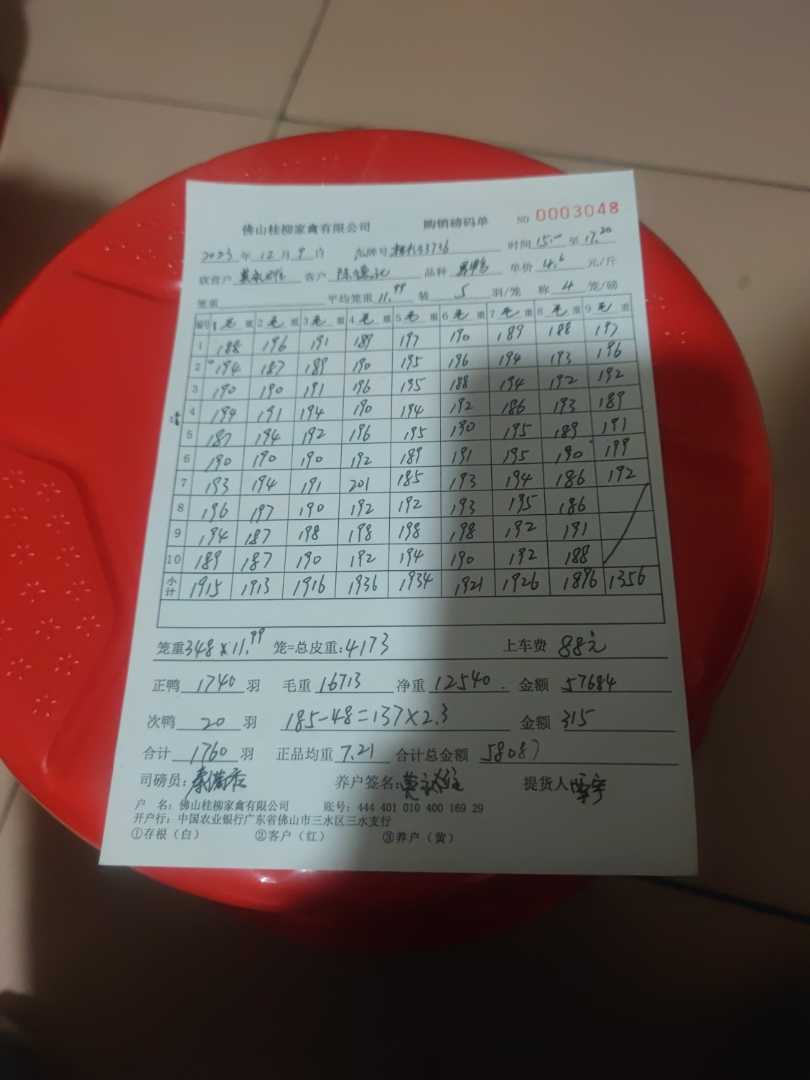 佛山桂柳家禽有限公司 购销磅码单 NO 0003048
2023 年 12 月 9 日 车牌号 3736 时间 15.00 至 17.20
客户 品种 单价 4.6 元/斤
笼重 平均笼重 11.99 装 5 羽/笼 称 4 笼/磅
编号 1 毛 重 2 毛 重 3 毛 重 4 毛 重 5 毛 重 6 毛 重 7 毛 重 8 毛 重 9 毛 重
1 188 196 191 189 197 190 189 188 197
2 194 187 189 190 195 196 194 193 196
3 190 190 191 196 195 188 194 192 192
4 194 191 194 190 194 192 186 193 189
5 187 194 192 196 195 190 195 189 191
6 190 190 190 192 189 191 195 190 199
7 193 194 191 201 185 193 194 186 192
8 196 197 190 192 192 193 195 186
9 194 187 198 198 198 198 192 191
10 189 187 190 192 194 190 192 188
小计 1915 1913 1916 1936 1934 1921 1926 1896 1356
笼重 348 × 11.99 笼=总皮重: 4173 上车费 88元
正鸭 1740 羽 毛重 16713 净重 12540 金额 57684
次鸭 20 羽 185-48=137×2.3 金额 315
合计 1760 羽 正品均重 7.21 合计总金额 58087
司磅员: 养户签名: 提货人
户 名: 佛山桂柳家禽有限公司 账号: 444 401 010 400 169 29
开户行: 中国农业银行广东省佛山市三水区三水支行
①存根（白） ②客户（红） ③养户（黄）